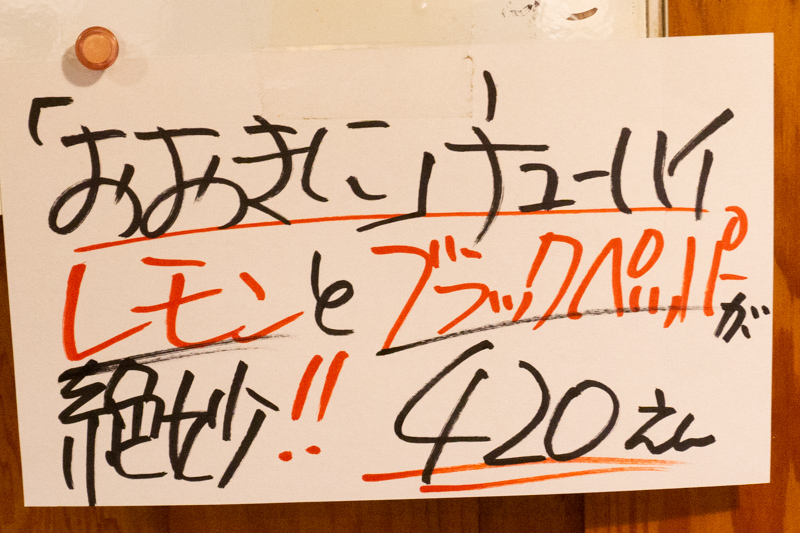 「おおきに」チューハイ
レモンとブラックペッパーが
絶妙!!
420えん